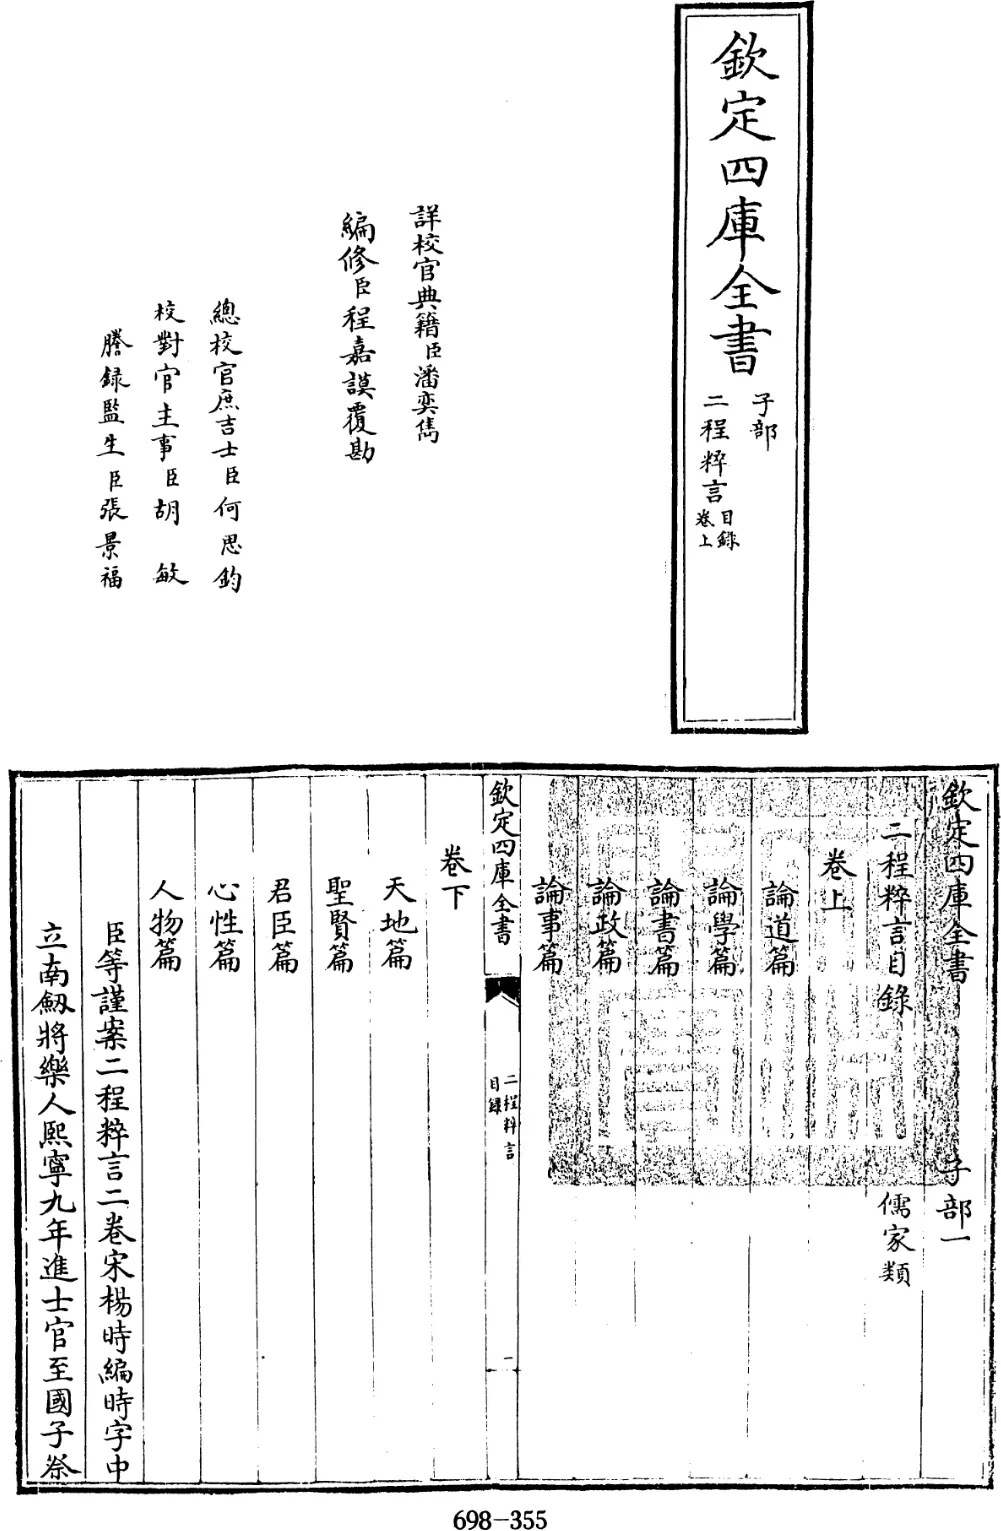 欽定四庫全書
子部
二程粹言
目錄
卷上
詳校官典籍臣潘奕雋
編修臣程嘉謨覆勘
總校官庶吉士臣何思鈞
校對官主事臣胡敏
謄録監生臣張景福
欽定四庫全書 子部一
二程粹言目錄 儒家類
卷上
論道篇
論學篇
論書篇
論政篇
論事篇
欽定四庫全書
二程粹言
目録
一
卷下
天地篇
聖賢篇
君臣篇
心性篇
人物篇
臣等謹案二程粹言二卷宋楊時編時字中
立南劔將樂人熙寧九年進士官至國子祭
698-355